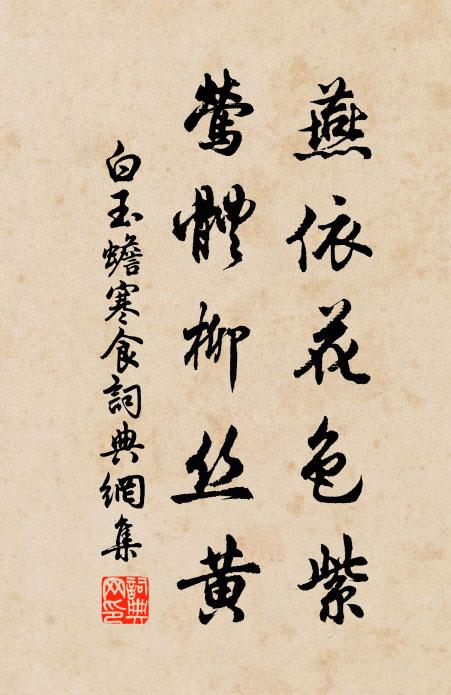 燕依花色紫
鶯體柳丝黄
白玉蟾寒食詞典網集
詞典网印